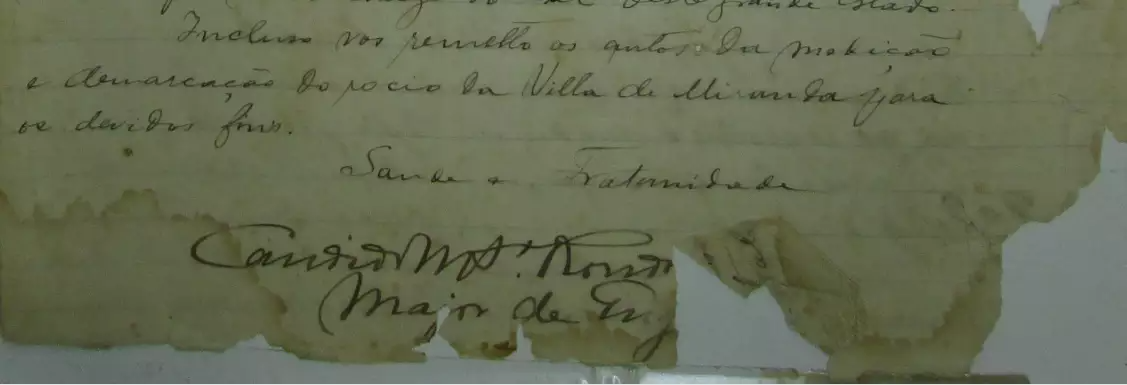 deste grande Estado.
Incluso vos remetto os autos da medição
e demarcação do rocio da Villa de Miranda para
os devidos fins.
Saude e Fraternidade
Candido M.ª Rond
Major de Eng